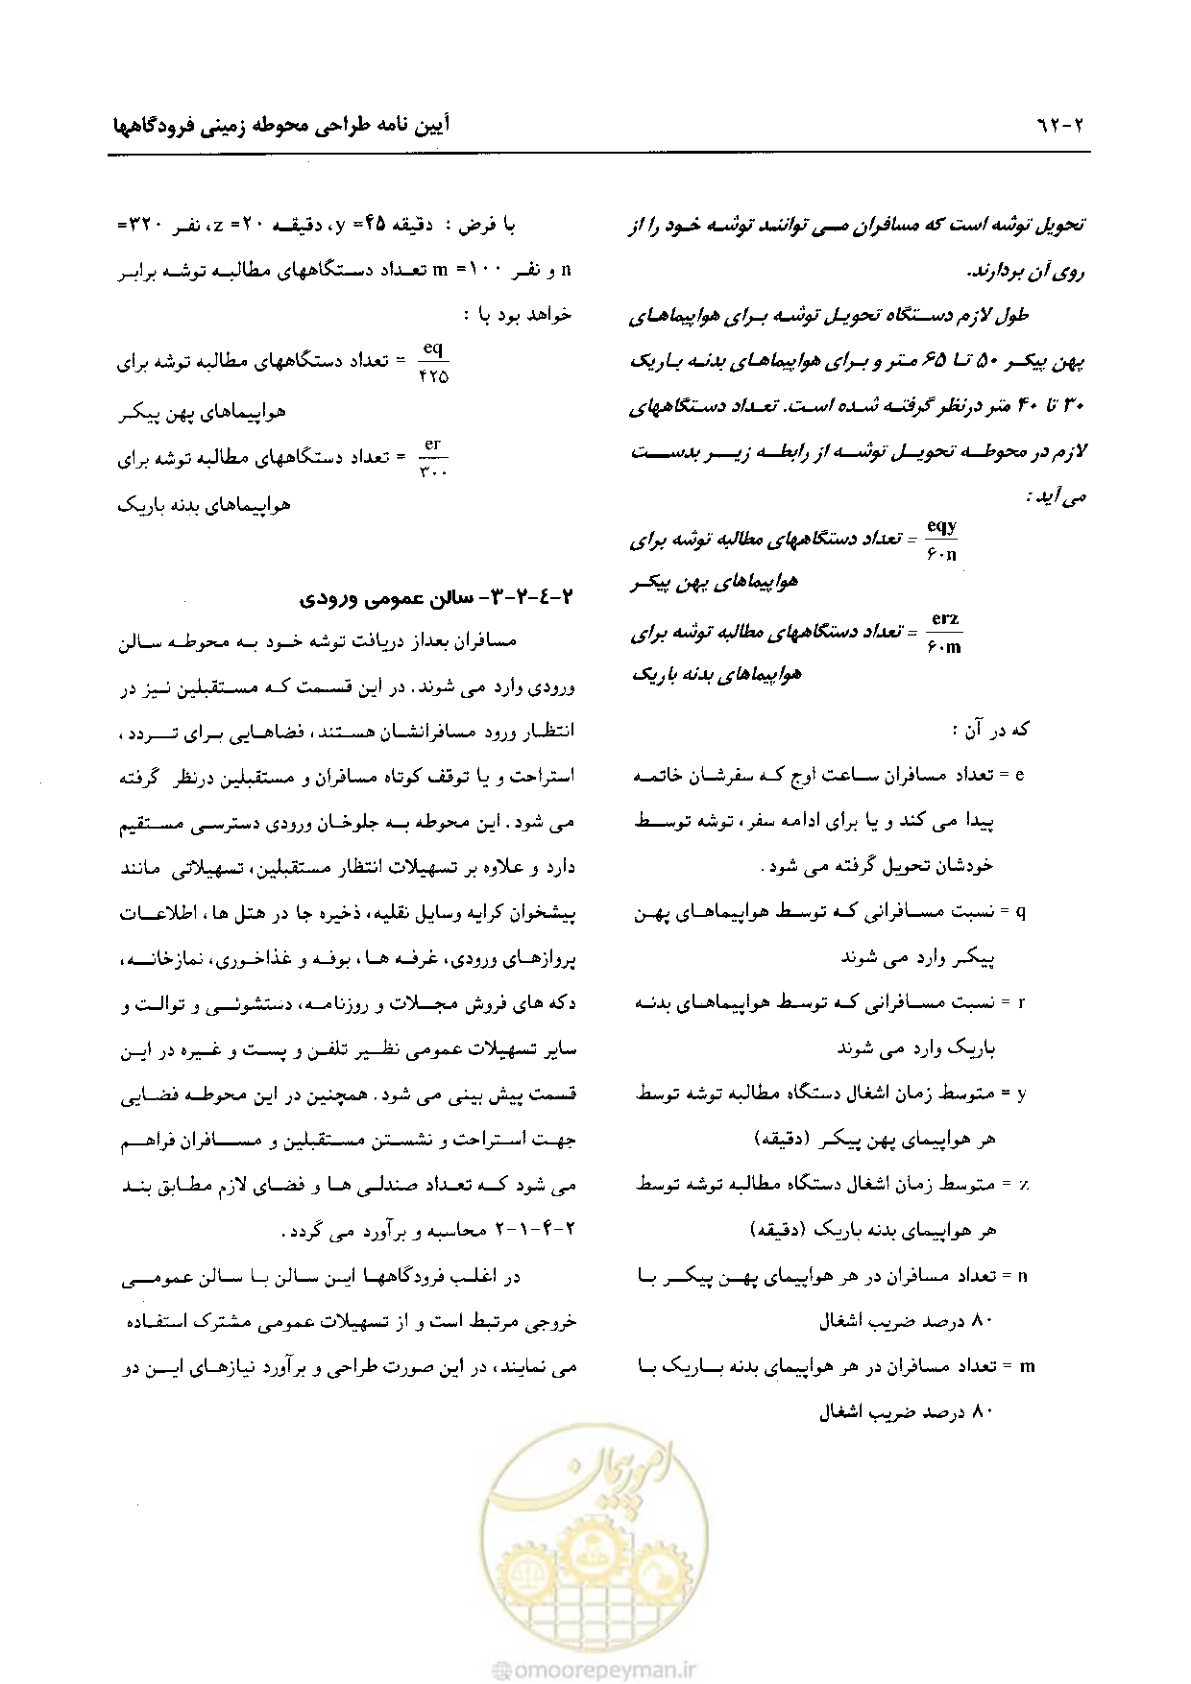 ۲-۶۲
آیین نامه طراحی محوطه زمینی فرودگاهها
تحویل توشه است که مسافران مـی تواننـد توشـه خـود را از
روی آن بردارند.
طول لازم دسـتگاه تحویـل توشـه بـرای هواپیماهـای
پهن پیکـر ۵۰ تـا ۶۵ متـر و بـرای هواپیماهـای بدنـه بـاریک
۳۰ تا ۴۰ متر درنظر گرفتـه شـده اسـت. تعـداد دسـتگاههای
لازم در محوطـه تحویـل توشـه از رابطـه زیـر بدسـت
می آید :
eqy / ۶۰n = تعداد دستگاههای مطالبه توشه برای
هواپیماهای پهن پیکـر
erz / ۶۰m = تعداد دستگاههای مطالبه توشه برای
هواپیماهای بدنه باریک
که در آن :
e = تعداد مسافران سـاعت اوج کـه سفرشـان خاتمـه
پیدا می کند و یا برای ادامه سفر ، توشه توسـط
خودشان تحویل گرفته می شود .
q = نسبت مسـافرانی کـه توسـط هواپیماهـای پهـن
پیکـر وارد می شوند
r = نسبت مسـافرانی کـه توسـط هواپیماهـای بدنـه
باریک وارد می شوند
y = متوسط زمان اشغال دستگاه مطالبه توشه توسط
هر هواپیمای پهن پیکـر (دقیقه)
z = متوسط زمان اشغال دستگاه مطالبه توشه توسط
هر هواپیمای بدنه باریک (دقیقه)
n = تعداد مسافران در هر هواپیمای پهـن پیکـر بـا
۸۰ درصد ضریب اشغال
m = تعداد مسافران در هر هواپیمای بدنه بـاریک بـا
۸۰ درصد ضریب اشغال
با فرض : دقیقه ۴۵= y، دقیقـه ۲۰= z، نفـر ۳۲۰=
n و نفـر ۱۰۰= m تعـداد دسـتگاههای مطالبـه توشـه برابـر
خواهد بود با :
eq / ۴۲۵ = تعداد دستگاههای مطالبه توشه برای
هواپیماهای پهن پیکـر
er / ۳۰۰ = تعداد دستگاههای مطالبه توشه برای
هواپیماهای بدنه باریک
۲-٤-۲-۳- سالن عمومی ورودی
مسافران بعداز دریافت توشه خـود بـه محوطـه سـالن
ورودی وارد می شوند . در این قسمت کـه مسـتقبلین نـیز در
انتظـار ورود مسافرانشـان هسـتند ، فضاهـایی بـرای تـردد ،
استراحت و یا توقف کوتاه مسافران و مستقبلین درنظر گرفته
می شود . این محوطه بـه جلوخـان ورودی دسترسـی مسـتقیم
دارد و علاوه بر تسهیلات انتظار مستقبلین، تسهیلاتی مانند
پیشخوان کرایه وسایل نقلیه، ذخیره جا در هتل ها ، اطلاعـات
پروازهـای ورودی، غرفـه هـا ، بوفـه و غذاخـوری، نمازخانـه،
دکه های فروش مجـلات و روزنامـه، دستشوئـی و توالـت و
سایر تسهیلات عمومی نظـیر تلفـن و پسـت و غـیره در ایـن
قسمت پیش بینی می شود . همچنین در این محوطـه فضـایی
جهـت اسـتراحت و نشسـتن مسـتقبلین و مسـافران فراهـم
می شود کـه تعـداد صندلـی هـا و فضـای لازم مطـابق بنـد
۲-۱-۴-۲ محاسبه و برآورد می گردد .
در اغلـب فرودگاههـا ایـن سـالن بـا سـالن عمومـی
خروجی مرتبط است و از تسهیلات عمومی مشترک استفـاده
می نمایند، در این صورت طراحی و برآورد نیازهـای ایـن دو
امورپیمان
@omoorepeyman.ir